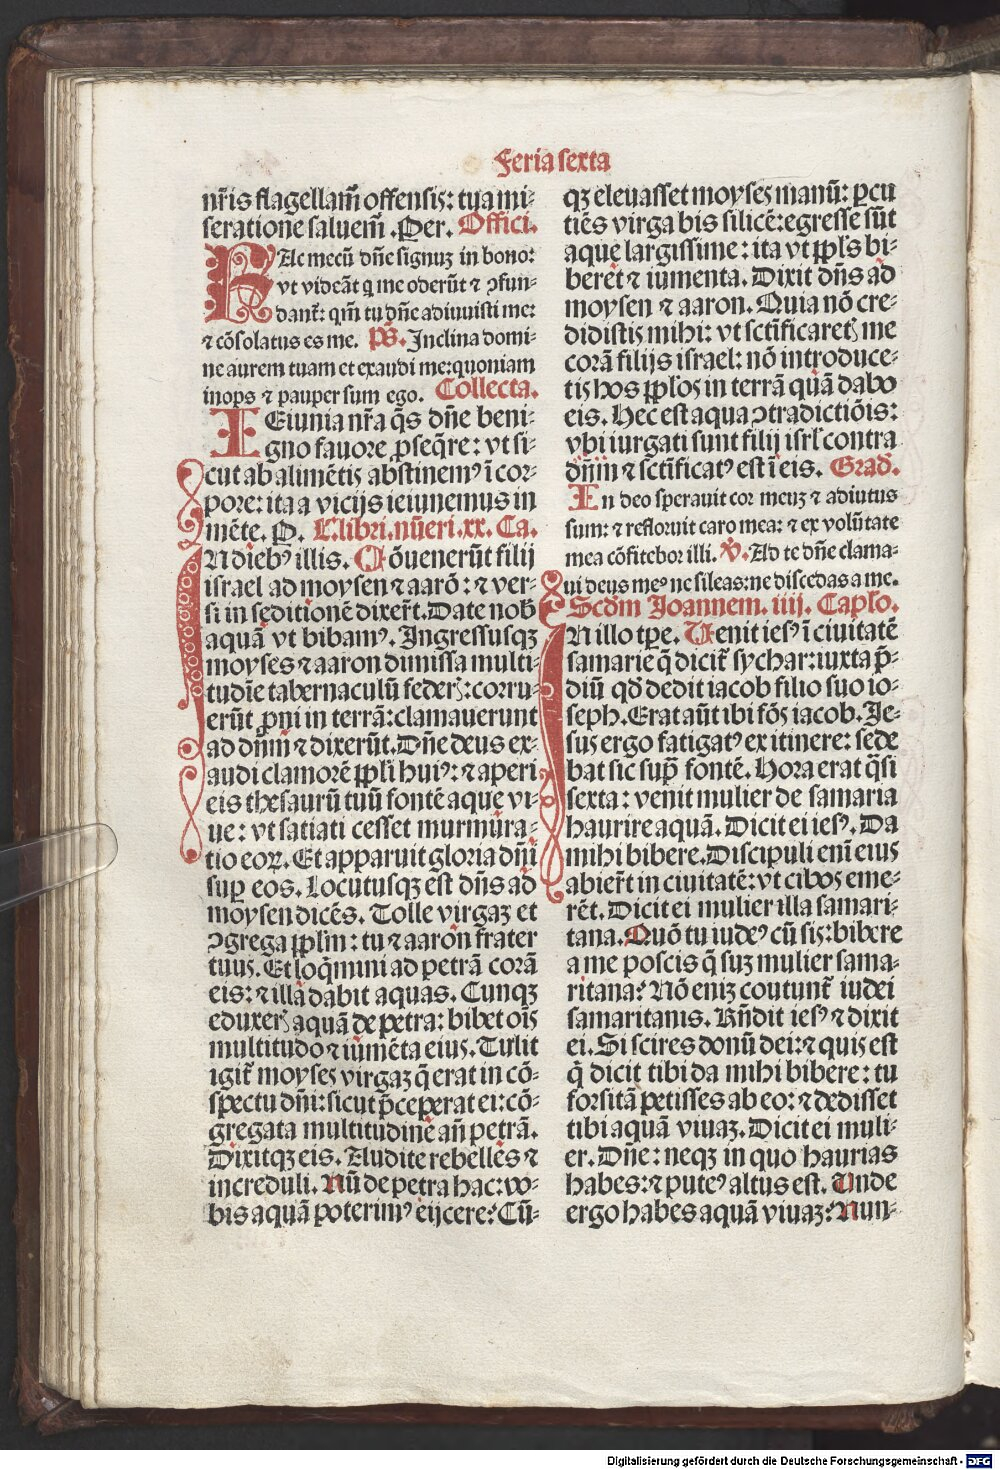 Feria sexta
nr̃is flagellam̃ offensis: tua mi⸗
seratione saluem̃ .Per. Offici.
FAc mecũ dñe signuꝫ in bono:
vt videãt q̃ me oderũt ⁊ ↄfun⸗
dant̃: qm̃ tu dñe adiuuisti me:
⁊ cõsolatus es me. Ps̃. Inclina domi⸗
ne aurem tuam et exaudi me: quoniam
inops ⁊ pauper sum ego. Collecta.
IEiunia nr̃a q̃s dñe beni⸗
gno fauore ꝓseq̃re: vt si⸗
cut ab alimẽtis abstinemꝰ ĩ cor⸗
pore: ita a vicijs ieiunemus in
mẽte. P. L̃. libri. nũeri. xx. Ca.
IN diebꝰ illis. Cõuenerũt filij
israel ad moysen ⁊ aarõ: ⁊ ver⸗
si in seditionẽ dixer̃t. Date nob̃
aquã vt bibamꝰ. Ingressusqꝫ
moyses ⁊ aaron dimissa multi⸗
tudĩe tabernaculũ feder̃: corru⸗
erũt ꝓni in terrã: clamauerunt
ad dñm ⁊ dixerũt. Dñe deus ex⸗
audi clamorẽ ppl̃i huiꝰ: ⁊ aperi
eis thesaurũ tuũ fontẽ aque vi⸗
ue: vt satiati cesset murmura⸗
tio eoꝝ. Et apparuit gloria dñi
suꝑ eos. Locutusqꝫ est dñs ad
moysen dicẽs. Tolle virgaꝫ et
ↄgrega ppl̃m: tu ⁊ aaron frater
tuus. Et loq̃mini ad petrã corã
eis: ⁊ illa dabit aquas. Cunqꝫ
eduxer̃ aquã de petra: bibet oĩs
multitudo ⁊ iumẽta eius. Tulit
igit̃ moyses virgaꝫ q̃ erat in cõ⸗
spectu dñi: sicut p̃ceperat ei: cõ⸗
gregata multitudine añ petrã.
Dixitqꝫ eis. Audite rebelles ⁊
increduli. Nũ de petra hac: vo⸗
bis aquã poterimꝰ eijcere? Cũ⸗
qꝫ eleuasset moyses manũ: ꝑcu
tiẽs virga bis silicẽ: egresse sũt
aque largissime: ita vt ppl̃s bi⸗
beret ⁊ iumenta. Dixit dñs ad
moysen ⁊ aaron. Quia nõ cre⸗
didistis mihi: vt sct̃ificaretꝭ me
corã filijs israel: nõ introduce⸗
tis hos ppl̃os in terrã quã dabo
eis. Hec est aqua ↄtradictiõis:
vbi iurgati sunt filij isrl̃ contra
dñm ⁊ sct̃ificatꝰ est ĩ eis. Grad̃.
In deo sperauit cor meuꝫ ⁊ adiutus
sum: ⁊ refloruit caro mea: ⁊ ex volũtate
mea cõfitebor illi. ℣. Ad te dñe clama⸗
ui deus meꝰ ne sileas: ne discedas a me.
Scd̃m Joannem. iiij. Caplo.
IN illo tp̃e. Venit iesꝰ ĩ ciuitatẽ
samarie q̃ dicit̃ sychar: iuxta p̃⸗
diũ qd̃ dedit iacob filio suo io⸗
seph. Erat aũt ibi fõs iacob. Je⸗
sus ergo fatigatꝰ ex itinere: sede
bat sic sup̃ fontẽ. Hora erat q̃si
sexta: venit mulier de samaria
haurire aquã. Dicit ei iesꝰ. Da
mihi bibere. Discipuli eni eius
abier̃t in ciuitatẽ: vt cibos eme⸗
rẽt. Dicit ei mulier illa samari⸗
tana. Quõ tu iudeꝰ cũ sis: bibere
a me poscis q̃ suꝫ mulier sama⸗
ritana? Nõ eniꝫ coutunt̃ iudei
samaritanis. Rñdit iesꝰ ⁊ dixit
ei. Si scires donũ dei: ⁊ quis est
q̃ dicit tibi da mihi bibere: tu
forsitã petisses ab eo: ⁊ dedisset
tibi aquã viuaꝫ. Dicit ei muli⸗
er. Dñe: neqꝫ in quo haurias
habes: ⁊ puteꝰ altus est. Unde
ergo habes aquã viuaꝫ? Nun⸗
Digitalisierung gefördert durch die Deutsche Forschungsgemeinschaft - DFG